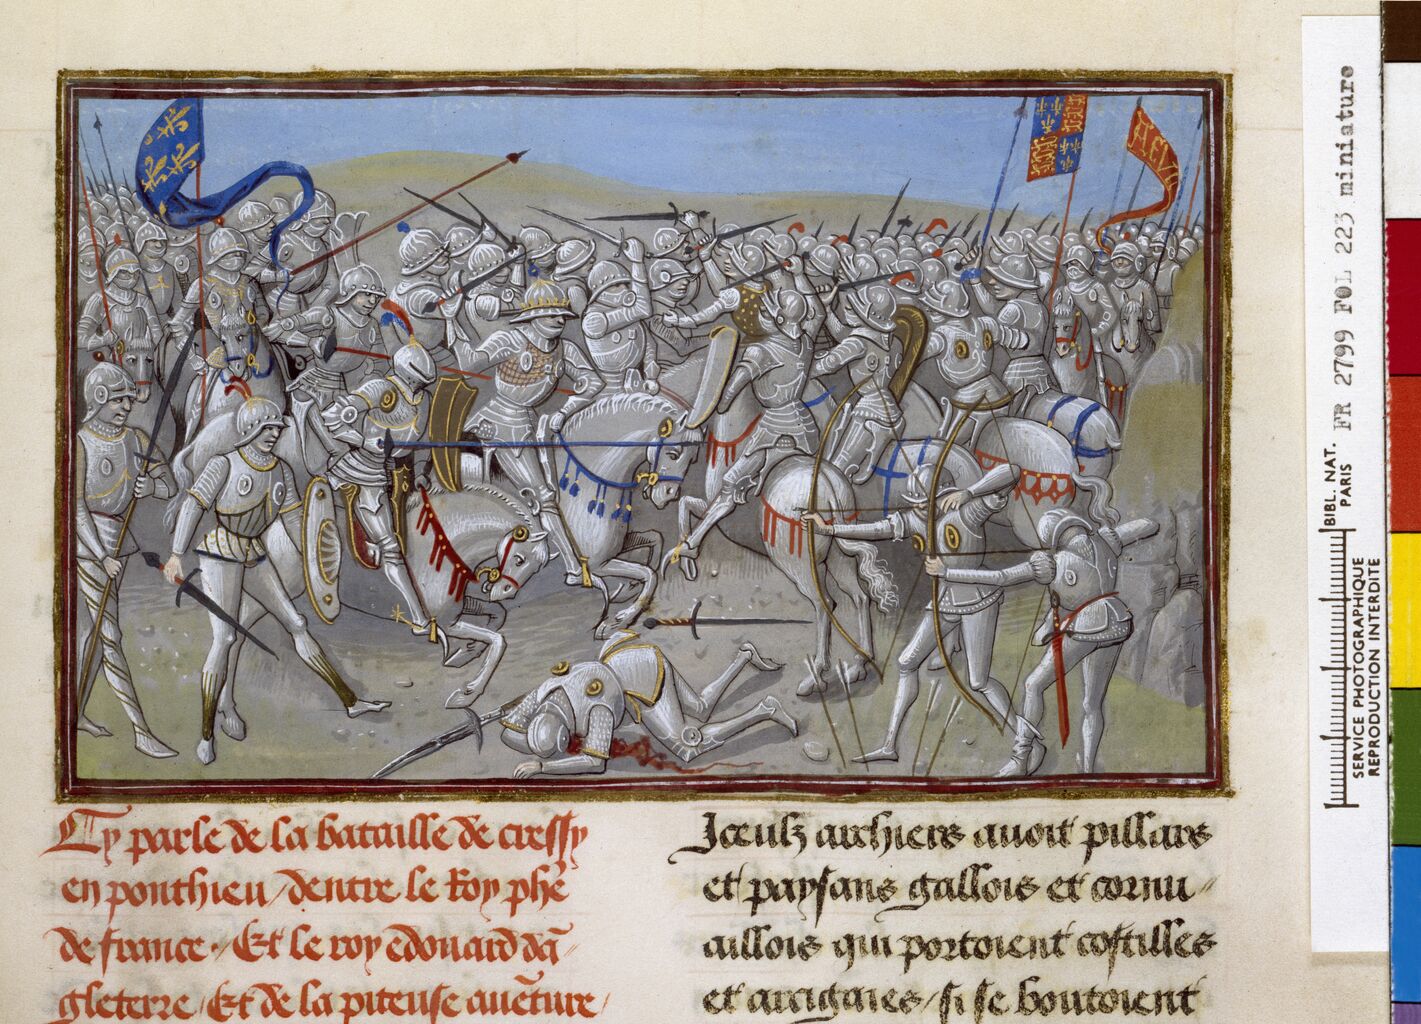 Cy parle de la bataille de cressy
en ponthieu / dentre le Roy phe
de france. Et le roy edouard dā
gleterre / Et de la piteuse auēture /
Iceulz archiers auoit pillars
et paysans gallois et cornu〃
aillois qui portoient costilles
et arcigaies / si se boutoient
BIBL. NAT.
PARIS
SERVICE PHOTOGRAPHIQUE
REPRODUCTION INTERDITE
FR 2799 FOL 223 miniature